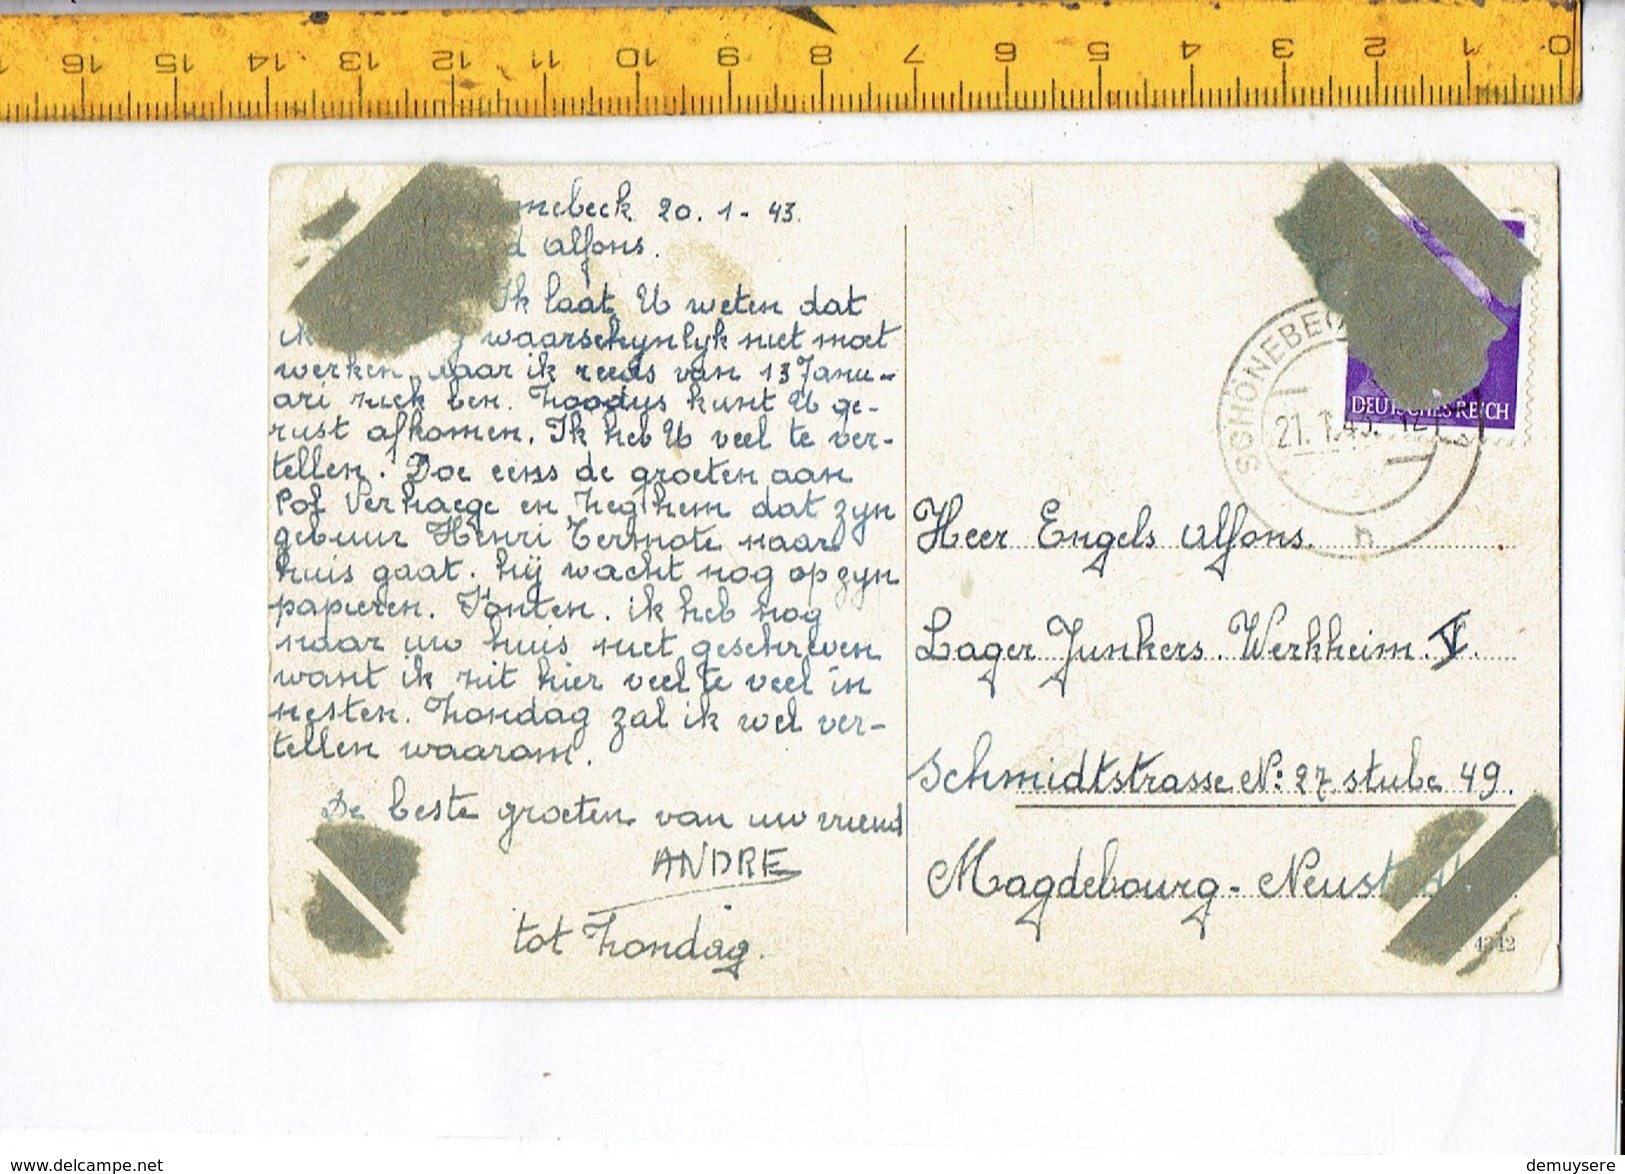 16 15 14 13 12 11 10 9 8 7 6 5 4 3 2 1 0
nebeck 20.1-43.
d Alfons.
Ik laat U weten dat
ik waarschynlyk niet moet
werken, daar ik reeds van 13 Janu-
ari ziek ben. Zoodus kunt U ge-
rust afkomen. Ik heb U veel te ver-
tellen. Doe eens de groeten aan
Pol Verhaege en zeg hem dat zyn
gebuur Henri Termote naar
huis gaat. hij wacht nog op zyn
papieren. Fonten. ik heb nog
naar uw huis niet geschreven
want ik zit hier veel te veel in
nesten. Zondag zal ik wel ver-
tellen waarom.
De beste groeten van uw vriend
ANDRE
tot Zondag.
SCHÖNEBEC
21.1.43. 12
h
DEUTSCHES REICH
Heer Engels Alfons.
Lager Junkers. Werkheim V.
Schmidtstrasse N: 27 stube 49.
Magdebourg - Neustad
4342
delcampe.net
demuysere